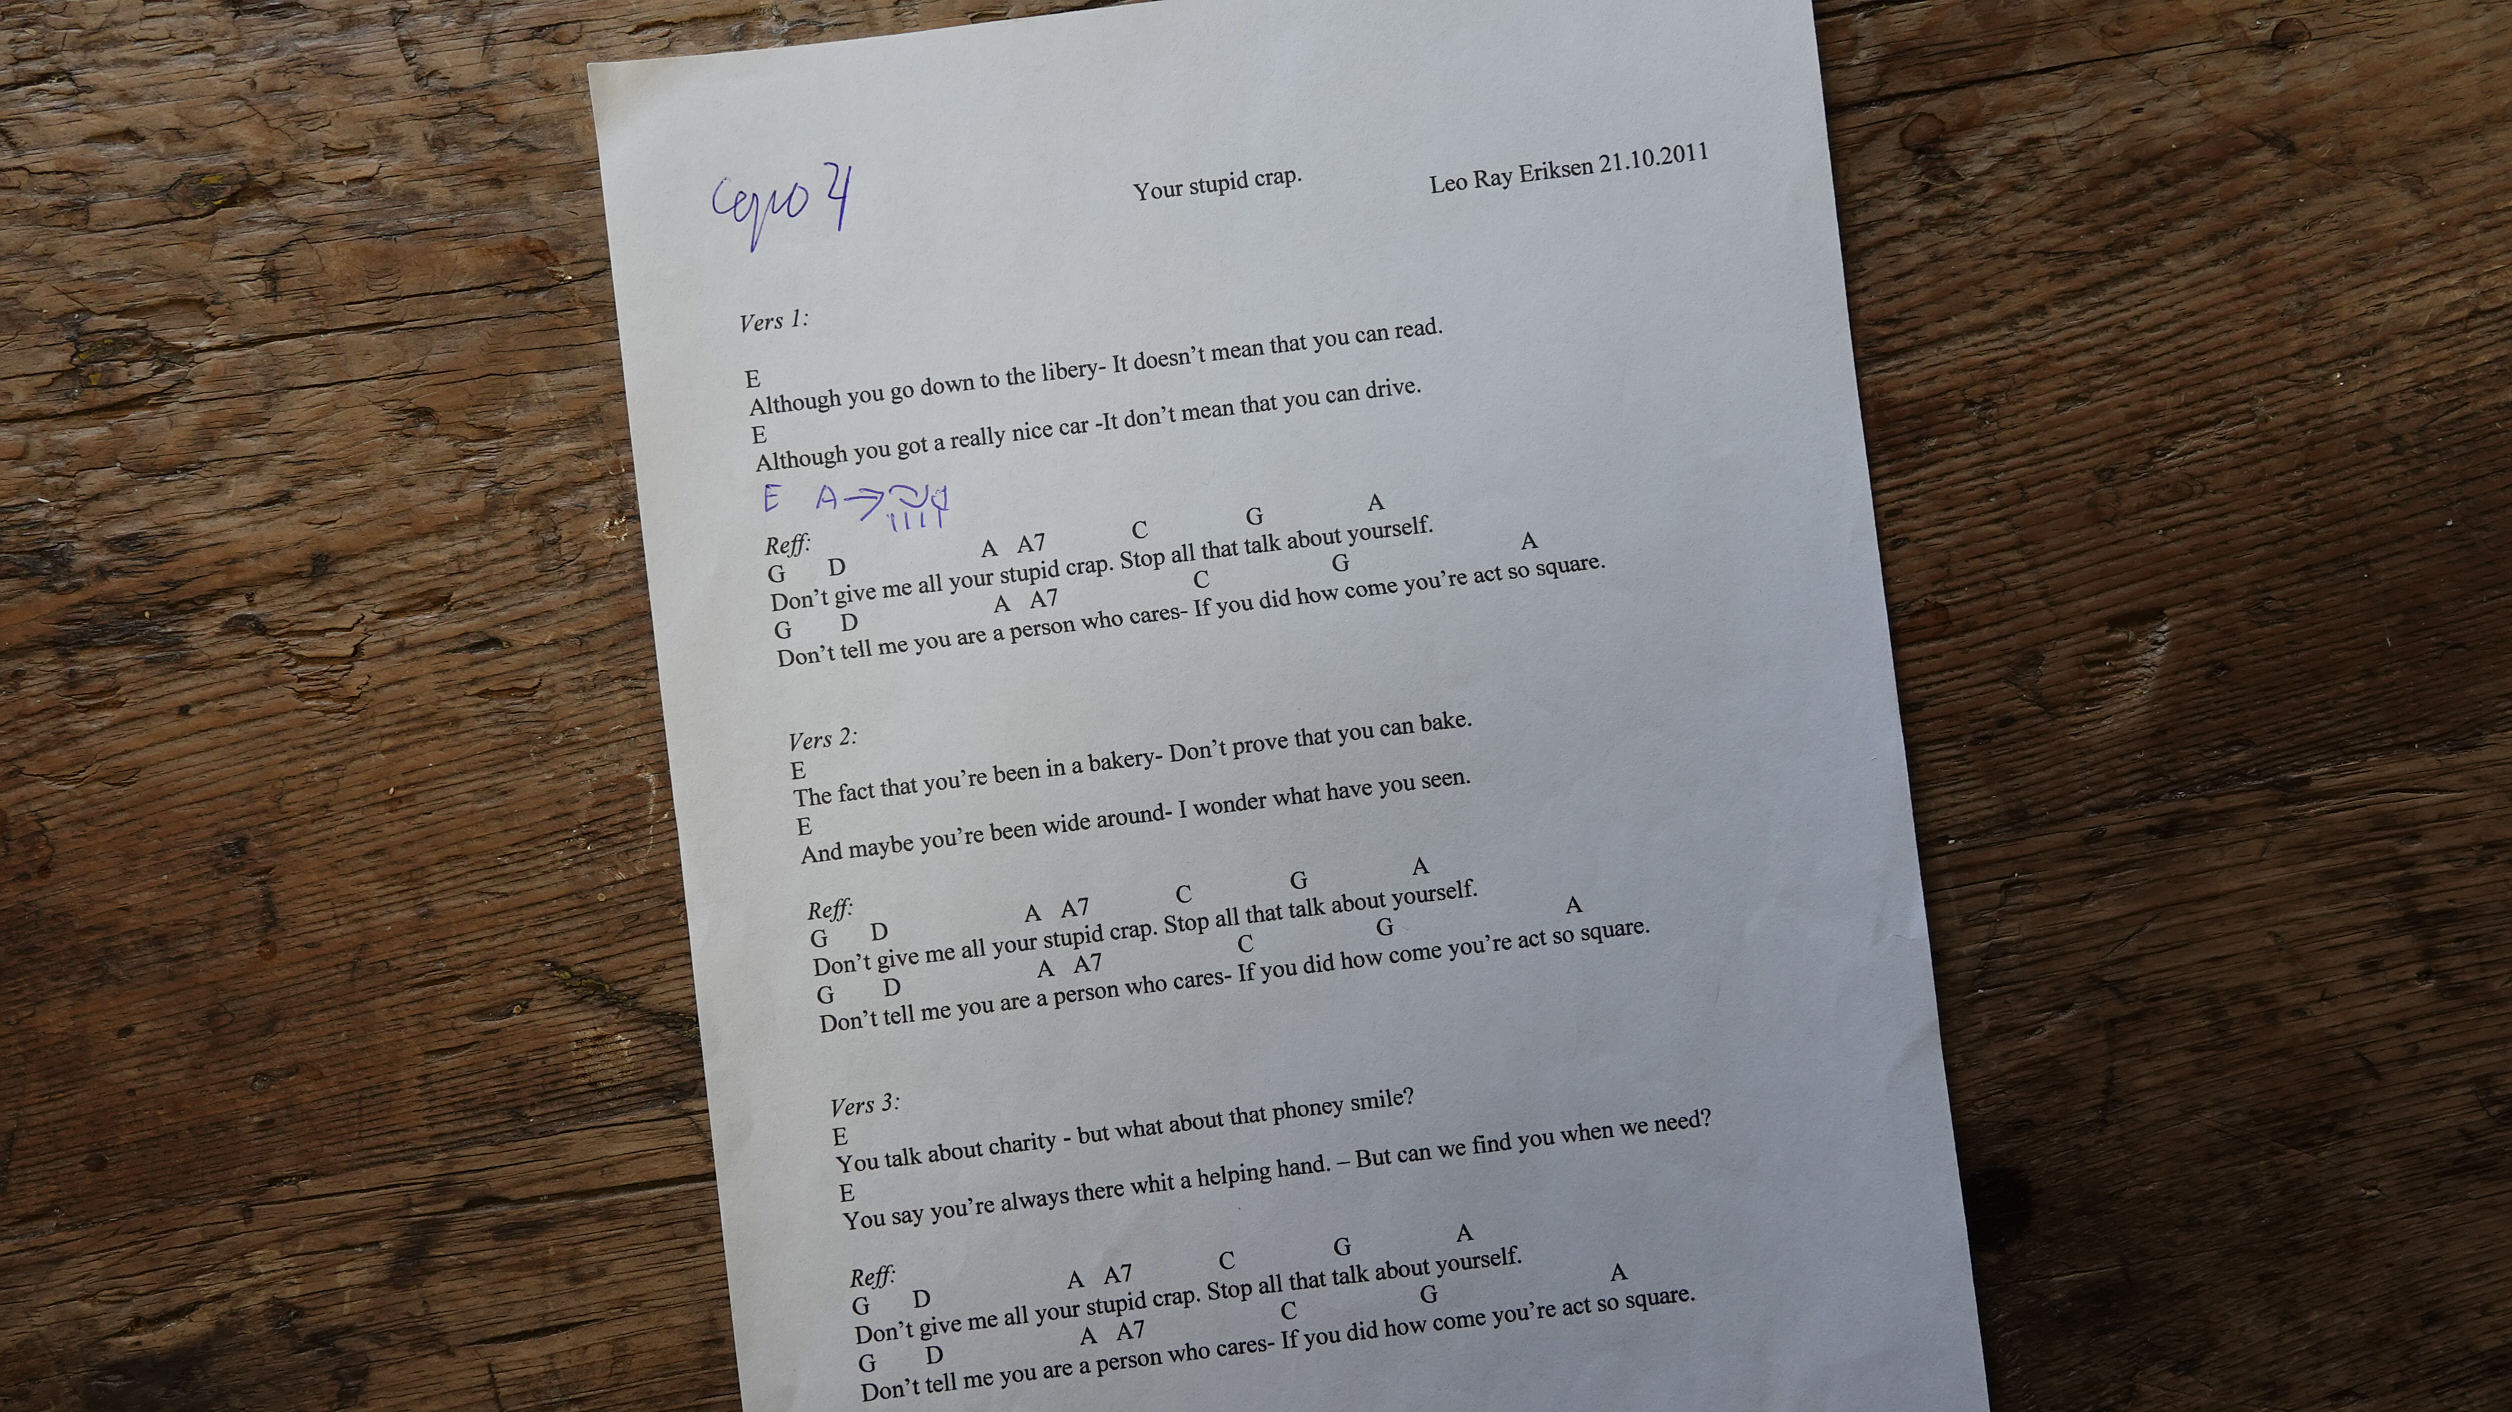 Capo 4
Your stupid crap.
Leo Ray Eriksen 21.10.2011
Vers 1:
E
Although you go down to the libery- It doesn't mean that you can read.
E
Although you got a really nice car -It don't mean that you can drive.
E A→
Reff:
G D A A7 C G A
Don't give me all your stupid crap. Stop all that talk about yourself.
G D A A7 C G A
Don't tell me you are a person who cares- If you did how come you're act so square.
Vers 2:
E
The fact that you're been in a bakery- Don't prove that you can bake.
E
And maybe you're been wide around- I wonder what have you seen.
Reff:
G D A A7 C G A
Don't give me all your stupid crap. Stop all that talk about yourself.
G D A A7 C G A
Don't tell me you are a person who cares- If you did how come you're act so square.
Vers 3:
E
You talk about charity - but what about that phoney smile?
E
You say you're always there whit a helping hand. – But can we find you when we need?
Reff:
G D A A7 C G A
Don't give me all your stupid crap. Stop all that talk about yourself.
G D A A7 C G A
Don't tell me you are a person who cares- If you did how come you're act so square.